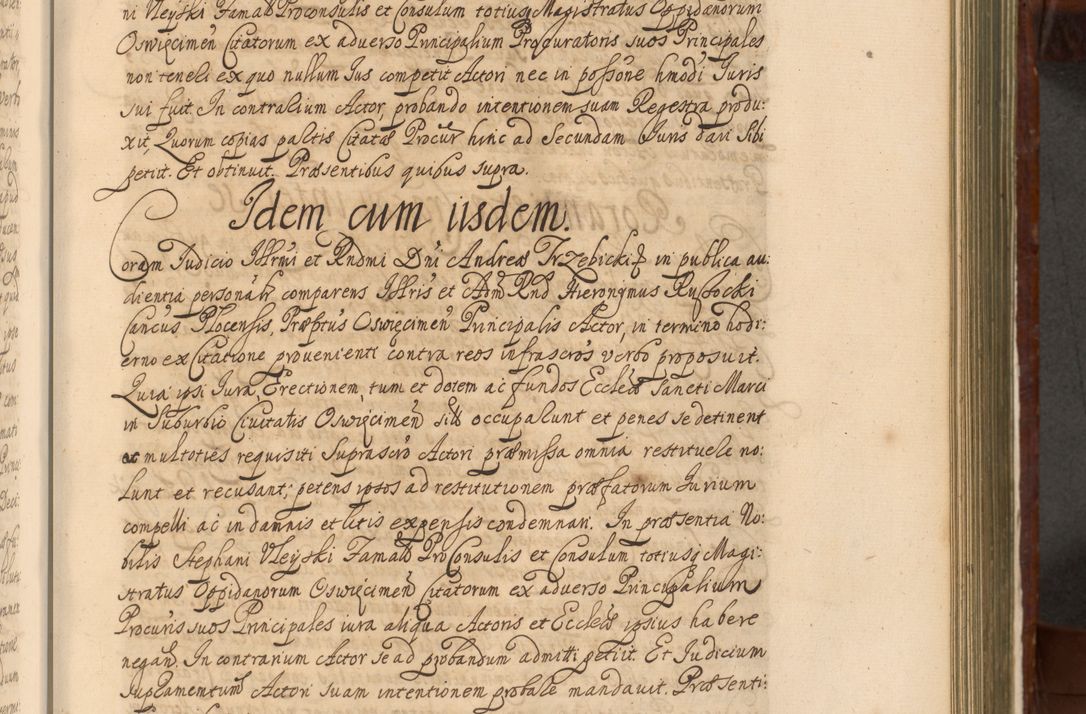 ni Uleyski Famatt Proconsulis et Consulum totiusq Magistratus Oppidanorum
Oswięcimen Citatorum ex adverso Principalium Procuratoris suos Principales
non teneri ex quo nullum Ius competit Actori nec in possone hmodi Iuris
sui fuit. In contrarium Actor, probando intentionem suam Regestra produ:
xit, Quorum copias partis Citatæ Procur hinc ad Secundam Iuris dari Sibi
petiit. Et obtinuit. Præsentibus quibus supra.
Idem cum iisdem.
Coram Iudicio Illrmi et Rndmi Dni Andreæ Trzebicki in publica au:
dientia personalr comparens Illris et Adm Rnd Hieronymus Russocki
Cancus Plocensis, Præptus Oswięcimen Principalis Actor, in termino hodi:
erno ex Citatione provenienti contra reos infrascros verbo proposuit.
Quia ipsi Iura, Erectionem, tum et dotem ac fundos Ecclæ Sancti Marci
in Suburbio Civitatis Oswięcimen occuparunt et penes se detinent
ac multoties requisiti Suprascro Actori præmissa omnia restituere no:
lunt et recusant; petens ipsos ad restitutionem præfatorum Iurium
compelli ac in damnis et litis expensis condemnari. In præsentia No:
bilis Stephani Uleyski Famatt ProConsulis et Consulum totiusq Magi:
stratus Oppidanorum Oswięcimen Citatorum ex adverso Principalium
Procuris suos Principales iura aliqua Actoris et Ecclæ ipsius habere
negan. In contrarium Actor se ad probandum admitti petiit. Et Iudicium
iuramentum Actori suam intentionem probare mandavit. Præsenti: